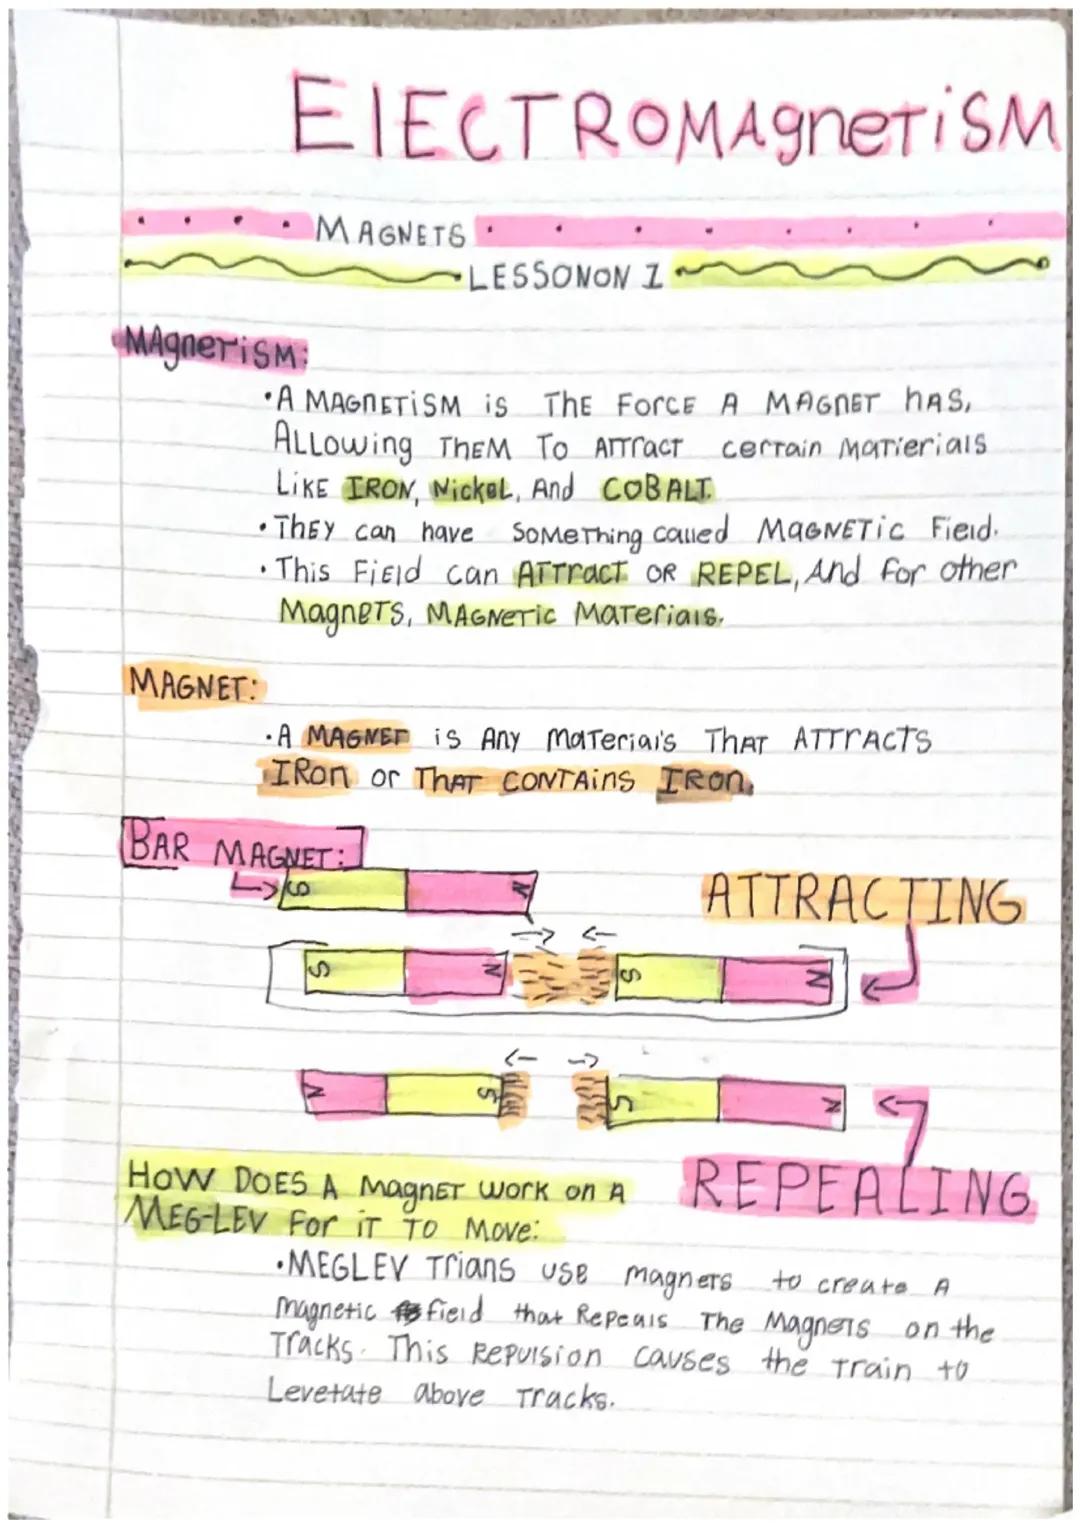 ElECTROMAgneTiSM
MAGNETS
LESSONON 1
MAgneTiSM:
•A MAGnETiSM is THE FORCE A MAGNET hAS,
ALLOwing THEM To ATTracT cerTain MaTierials
LiKE IRON, NickeL, And COBALT.
•THEY can have SOMeThing called MAGNETic Field.
•This FiEld can ATTracT OR REPEL, And for other
MagneTS, MAGNeTic MaTerials.
MAGNET:
•A MAGNET is Any MaTerial's THAT ATTrACTS
IRon or THAT CONTAins IRon.
BAR MAGNET:
S N
ATTRACTING
S N S N
N S S N
REPEALING
HOW DOES A MagnET work on A
MEG-LEV For iT To Move:
•MEGLEV Trians use magnets to create A
magnetic field that Repeals The Magnets on the
Tracks. This Repulsion causes the Train to
Levetate above Tracks.